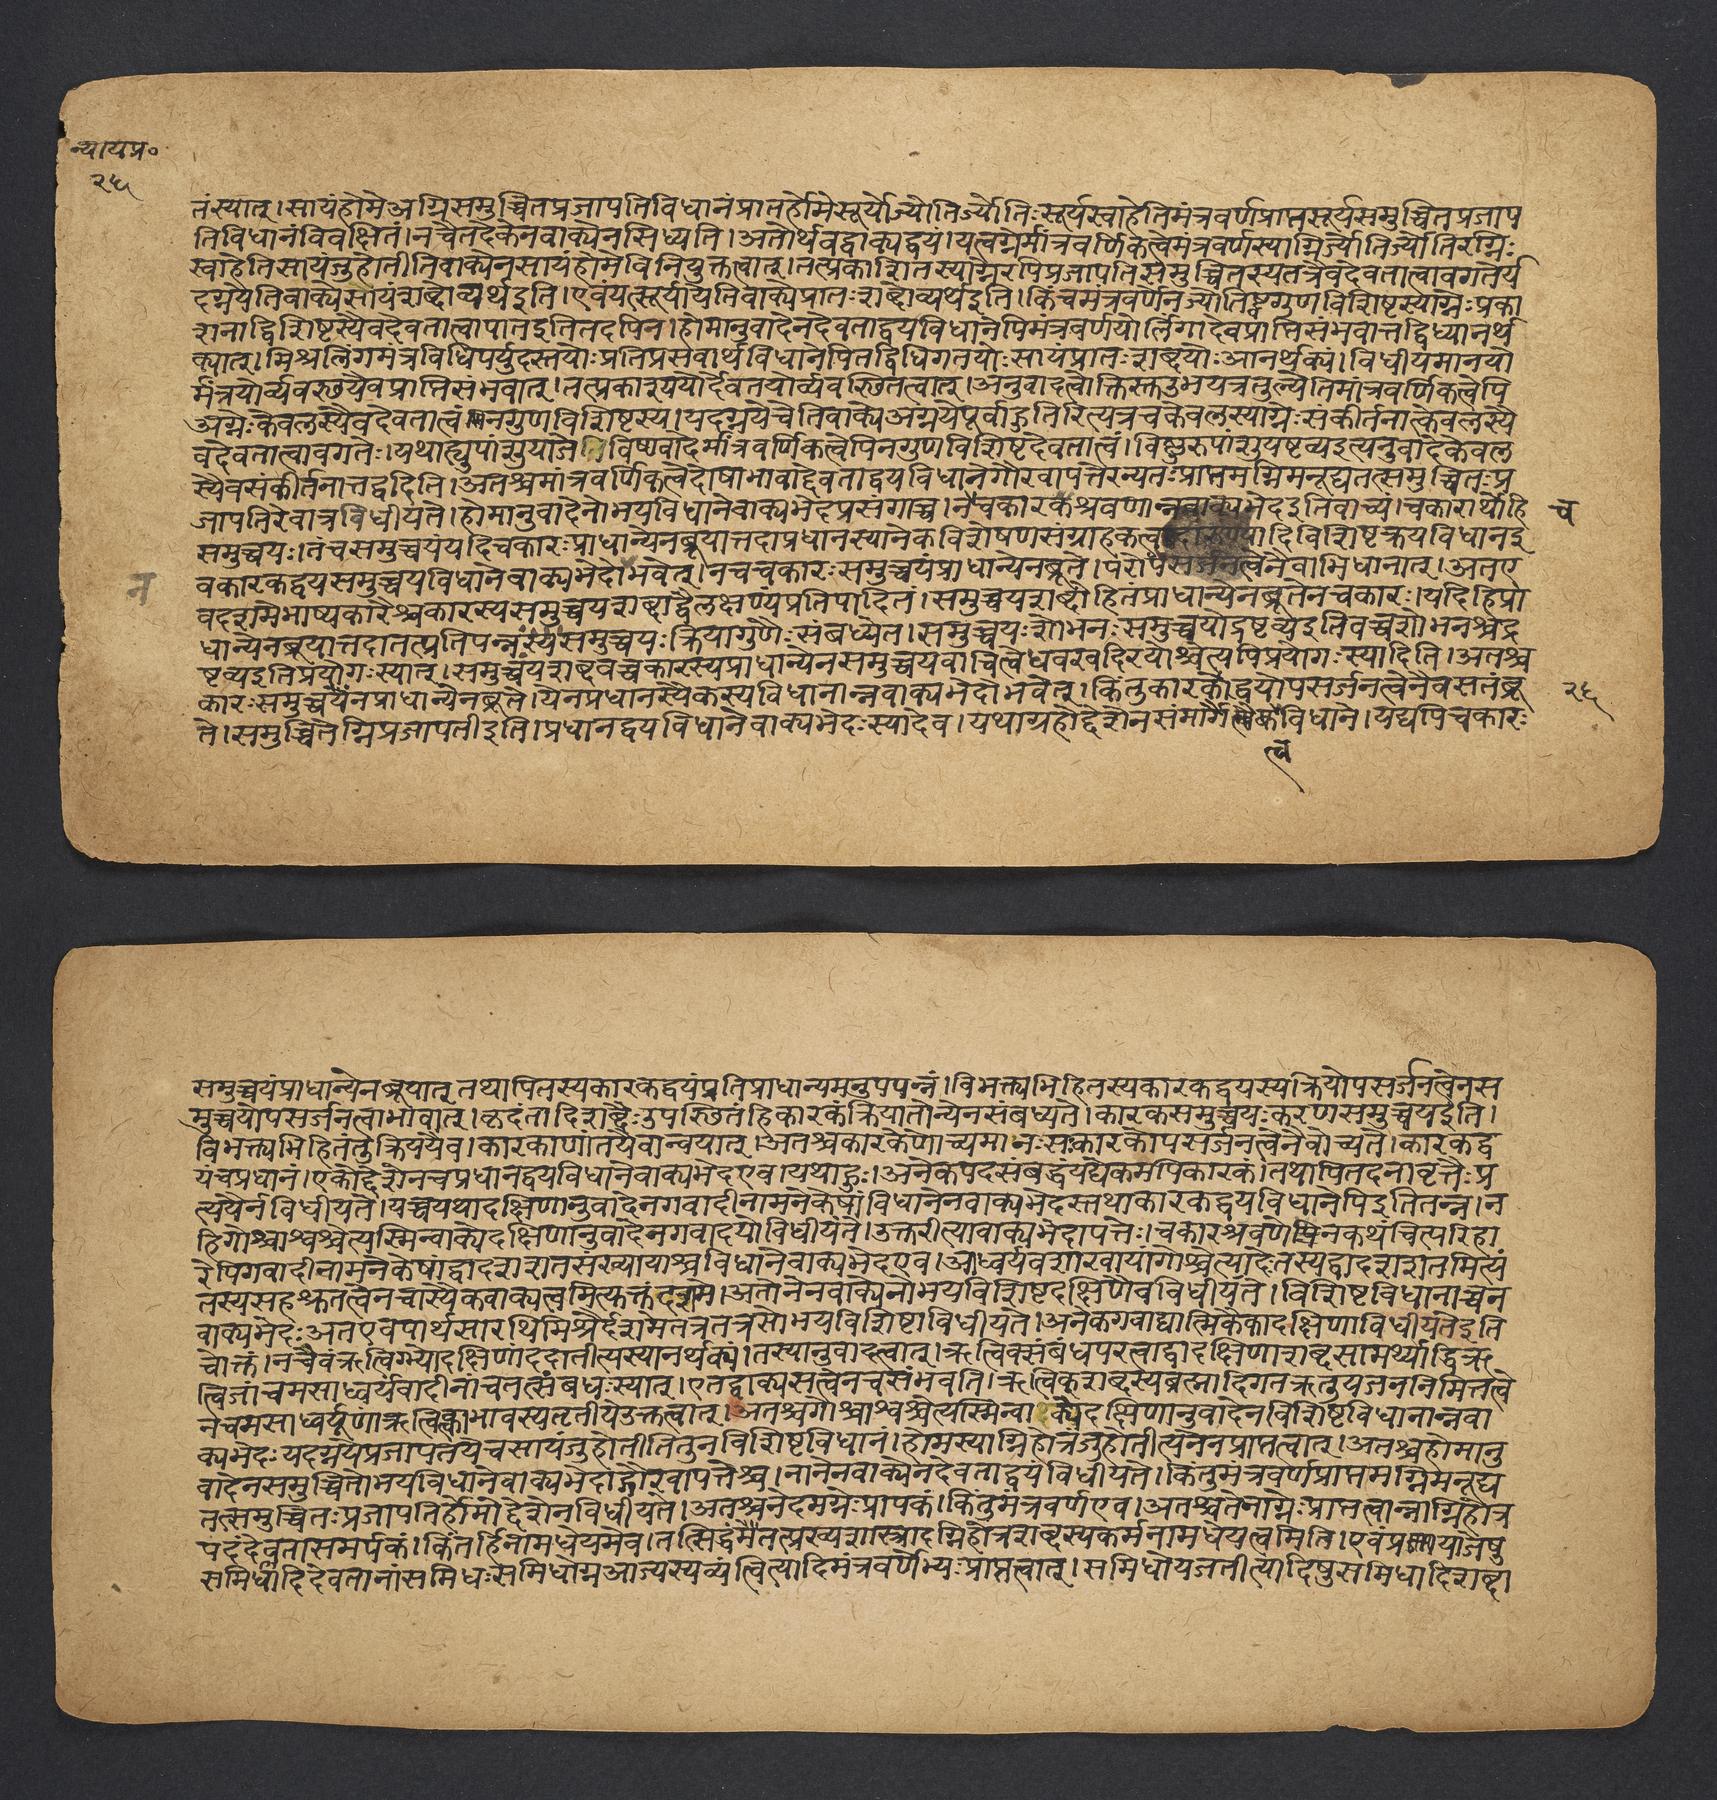 न्यायप्र॰
२६
तंस्यात्।सायंहोमेअग्निसमुच्चितप्रजापतिविधानंप्रातर्होमेसूर्योज्योतिर्ज्योतिःसूर्यस्वाहेतिमंत्रवर्णप्राप्तसूर्यसमुच्चितप्रजाप
तिविधानंविवक्षितं।नचैतदेकेनवाक्येनसिध्यति।अतोर्थवद्वाक्यद्वयं।यत्वग्नेर्मांत्रवर्णिकत्वेमंत्रवर्णस्याग्निर्ज्योतिर्ज्योतिरग्निः
स्वाहेतिसायंजुहोतीतिवाक्येनसायंहोमेविनियुक्तत्वात्।तत्प्रकाशितस्याग्नेरपिप्रजापतिसमुच्चितस्यतत्रैवदेवतात्वावगतेर्य
दग्नयेतिवाक्येसायंशब्दोव्यर्थइति।एवंयत्सूर्यायेतिवाक्येप्रातःशब्दोव्यर्थइति।किंचमंत्रवर्णेनज्योतिष्ट्वगुणविशिष्टस्याग्नेःप्रका
शनाद्विशिष्टस्यैवदेवतात्वापातइतितदपिन।होमानुवादेनदेवताद्वयविधानेपिमंत्रवर्णयोर्लिंगादेवप्राप्तिसंभवात्तद्विध्यानर्थ
क्यात्।मिश्रलिंगमंत्रविधिपर्युदस्तयोःप्रतिप्रसवार्थंविधानेपितद्विधिगतयोःसायंप्रातःशब्दयोःआनर्थक्यं।विधीयमानयो
र्मंत्रयोर्व्यवस्थयैवप्राप्तिसंभवात्।तत्प्रकाश्ययोर्देवतयोर्व्यवस्थितत्वात्।अनुवादत्वोक्तिस्तउभयत्रतुल्येतिमांत्रवर्णिकत्वेपि
अग्नेःकेवलस्यैवदेवतात्वंनगुणविशिष्टस्य।यदग्नयेचेतिवाक्येअग्नयेपूर्वाहुतिरित्यत्रचकेवलस्याग्नेःसंकीर्तनात्केवलस्यै
वदेवतात्वावगतेः।यथाह्युपांशुयाजेविष्ण्वादेर्मांत्रवर्णिकत्वेपिनगुणविशिष्टदेवतात्वं।विष्णुरुपांशुयष्टव्यइत्यनुवादेकेवल
स्यैवसंकीर्तनात्तद्वदिति।अतश्चमांत्रवर्णिकत्वेदोषाभावाद्देवताद्वयविधानेगौरवापत्तेरन्यतःप्राप्तमग्निमनूद्यतत्समुच्चितःप्र
जापतिरेवात्रविधीयते।होमानुवादेनोभयविधानेवाक्यभेदप्रसंगाच्च।नचकारकश्रवणान्नवाक्यभेदइतिवाच्यं।चकारार्थोहि
च
समुच्चयः।तंचसमुच्चयंयदिचकारःप्राधान्येनब्रूयात्तदाप्रधानस्यानेकविशेषणसंग्राहकत्वादारुण्यादिविशिष्टक्रयविधानइ
वकारकद्वयसमुच्चयविधानेवाक्यभेदोभवेत्।नचचकारःसमुच्चयंप्राधान्येनब्रूते।परोपसर्जनत्वेनैवाभिधानात्।अतए
न
वदशमेभाष्यकारैश्चकारस्यसमुच्चयशब्दाद्वैलक्षण्यंप्रतिपादितं।समुच्चयशब्दोहितंप्राधान्येनब्रूतेनचकारः।यदिहिप्रा
धान्येनब्रूयात्तदातत्प्रतिपन्नस्यसमुच्चयःक्रियागुणैःसंबध्येत।समुच्चयःशोभनःसमुच्चयोद्रष्टव्यइतिवच्चशोभनश्चद्र
ष्टव्यइतिप्रयोगःस्यात्।समुच्चयशब्दवच्चकारस्यप्राधान्येनसमुच्चयवाचित्वेधवखदिरयोश्चेत्यपिप्रयोगःस्यादिति।अतश्च
कारःसमुच्चयंनप्राधान्येनब्रूते।येनप्रधानस्यैकस्यविधानान्नवाक्यभेदोभवेत्।किंतुकारकद्वयोपसर्जनत्वेनैवसतंब्रू
२६
ते।समुच्चितेग्निप्रजापतीइति।प्रधानद्वयविधानेवाक्यभेदःस्यादेव।यथाग्रहोद्देशेनसंमार्गैकविधाने।यद्यपिचकारः
त्व
समुच्चयंप्राधान्येनब्रूयात्तथापितस्यकारकद्वयंप्रतिप्राधान्यमनुपपन्नं।विभक्त्यभिहितस्यकारकद्वयस्यक्रियोपसर्जनत्वेनस
मुच्चयोपसर्जनत्वाभावात्।कृदंतादिशब्दैःउपस्थितंहिकारकंक्रियातोन्येनसंबध्यते।कारकसमुच्चयःकरणसमुच्चयइति।
विभक्त्यभिहितंतुक्रिययैव।कारकाणांतयैवान्वयात्।अतश्चकारकेणोच्यमानःसकारकोपसर्जनत्वेनैवोच्यते।कारकद्व
यंचप्रधानं।एकोद्देशेनचप्रधानद्वयविधानेवाक्यभेदएव।यथाहुः।अनेकपदसंबद्धंयद्येकमपिकारकं।तथापितदनावृत्तैःप्र
त्ययैर्नविधीयते।यच्चयथादक्षिणानुवादेनगवादीनामनेकेषांविधानेनवाक्यभेदस्तथाकारकद्वयविधानेपिइतितन्न।न
हिगौश्चाश्वश्चेत्यस्मिन्वाक्येदक्षिणानुवादेनगवादयोविधीयंते।उक्तरीत्यावाक्यभेदापत्तेः।चकारश्रवणेपिनकथंचित्परिहा
रेपिगवादीनामनेकेषांद्वादशशतसंख्यायाश्चविधानेवाक्यभेदएव।आध्वर्यवशाखायांगौश्चेत्यादेःतस्यद्वादशशतमित्यं
तस्यसहश्रुतत्वेनचास्यैकवाक्यत्वमित्युक्तंदशमे।अतोनेनवाक्येनोभयविशिष्टदक्षिणैवविधीयते।विशिष्टविधानाच्चन
वाक्यभेदःअतएवपार्थसारथिमिश्रैर्दशमेतत्रतत्रसोभयविशिष्टाविधीयते।अनेकगवाद्यात्मिकैकादक्षिणाविधीयतेइति
चोक्तं।नचैवंऋत्विग्भ्योदक्षिणांददातीत्यस्यानर्थक्यं।तस्यानुवादत्वात्।ऋत्विक्संबंधपरत्वाद्वादक्षिणाशब्दसामर्थ्याद्धिऋ
त्विजांचमसाध्वर्यवादीनांचतत्संबंधःस्यात्।एतद्वाक्यसत्वेनचसंभवति।ऋत्विक्शब्दस्यब्रह्मादिगतऋतुयजननिमित्तत्वे
नचमसाध्वर्यूणांऋत्विक्त्वाभावस्यतृतीयेउक्तत्वात्।अतश्चगौश्चाश्वश्चेत्यस्मिन्वाक्येदक्षिणानुवादेनविशिष्टविधानान्नवा
क्यभेदःयदग्नयेप्रजापतयेचसायंजुहोतीतितुनविशिष्टविधानं।होमस्याग्निहोत्रंजुहोतीत्यनेनप्राप्तत्वात्।अतश्चहोमानु
वादेनसमुच्चितोभयविधानेवाक्यभेदाद्गौरवापत्तेश्च।नानेनवाक्येनदेवताद्वयंविधीयते।किंतुमंत्रवर्णप्राप्तमग्निमनूद्य
तत्समुच्चितःप्रजापतिर्होमोद्देशेनविधीयते।अतश्चनेदमग्नेःप्रापकं।किंतुमंत्रवर्णएव।अतश्चतेनाग्नेःप्राप्तत्वान्नाग्निहोत्र
पदंदेवतासमर्पकं।किंतर्हिनामधेयमेव।तत्सिद्धमेतत्तत्प्रख्यशास्त्रादग्निहोत्रशब्दस्यकर्मनामधेयत्वमिति।एवंप्रयाजेषु
समिधादिदेवतानांसमिधःसमिधोग्नआज्यस्यव्यंत्वित्यादिमंत्रवर्णेभ्यःप्राप्तत्वात्।समिधोयजतीत्यादिषुसमिधादिशब्दा